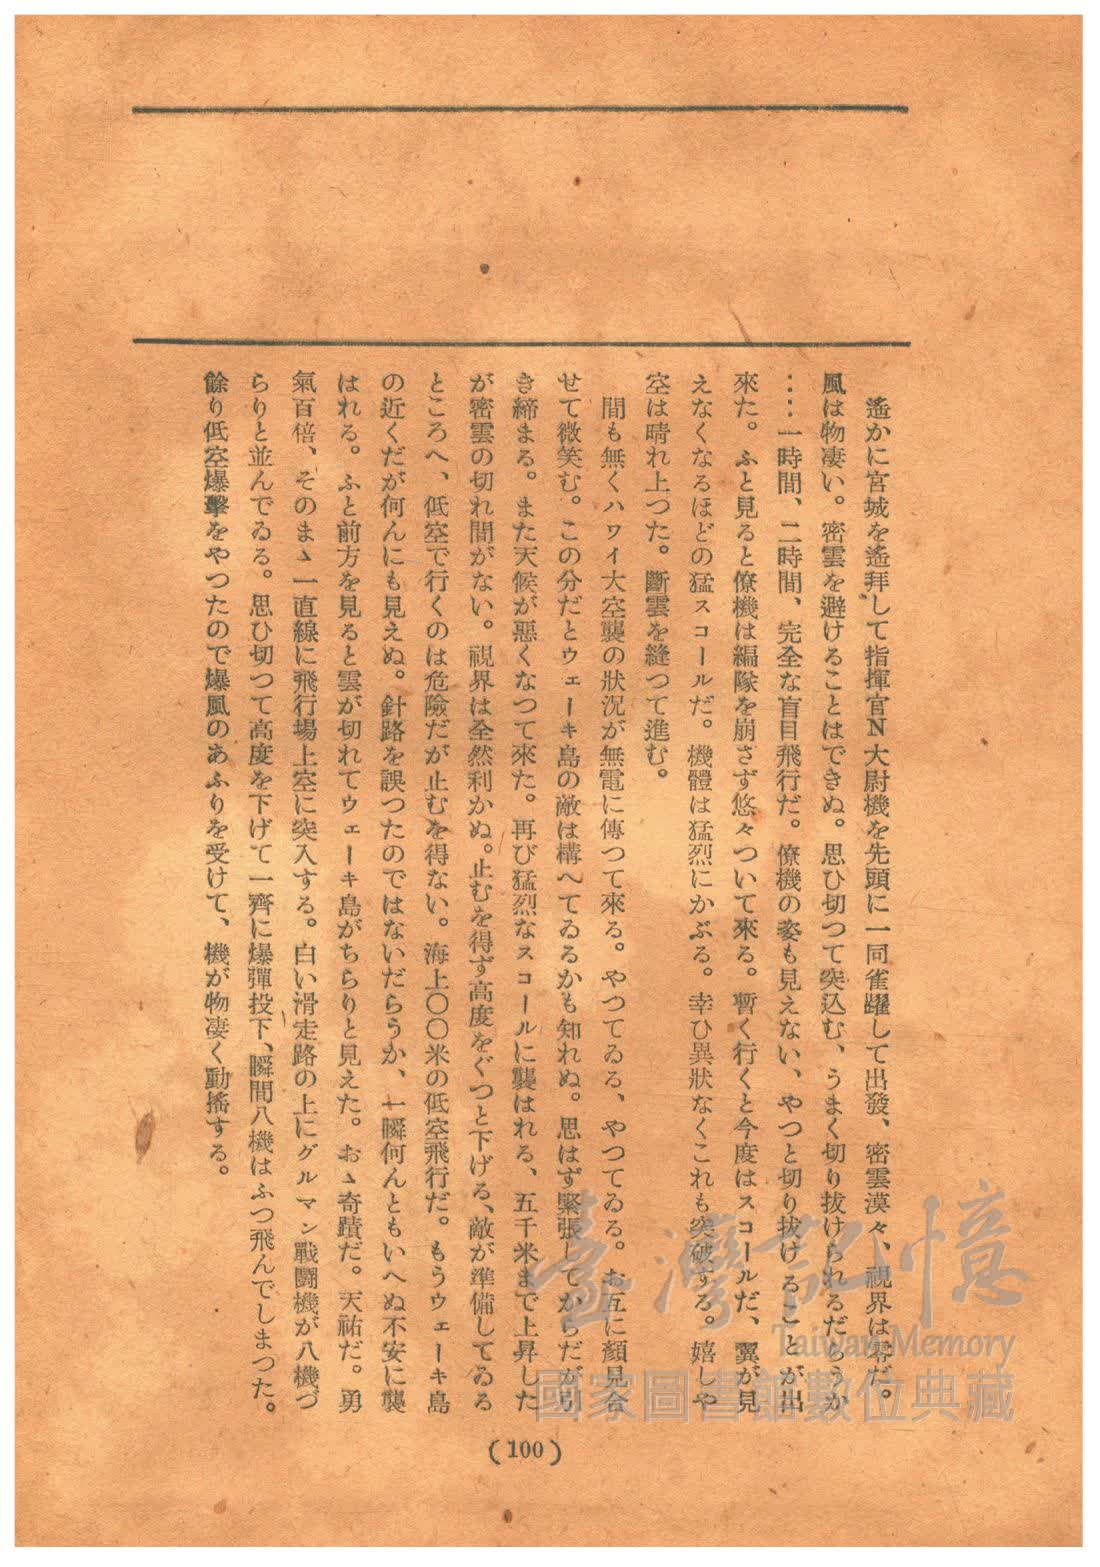 遙かに宮城を遙拜して指揮官N大尉機を先頭に一同雀躍して出發、密雲漠々、視界は零だ。
風は物凄い。密雲を避けることはできぬ。思ひ切つて突込む、うまく切り拔けられるだらうか
‥‥一時間、二時間、完全な盲目飛行だ。僚機の姿も見えない、やつと切り拔けることが出
來た。ふと見ると僚機は編隊を崩さず悠々ついて來る。暫く行くと今度はスコールだ、翼が見
えなくなるほどの猛スコールだ。機體は猛烈にかぶる。幸ひ異狀なくこれも突破する。嬉しや
空は晴れ上つた。斷雲を縫つて進む。
間も無くハワイ大空襲の狀況が無電に傳つて來る。やつてゐる、やつてゐる。お互に顏見合
せて微笑む。この分だとウェーキ島の敵は構へてゐるかも知れぬ。思はず緊張してからだが引
き締まる。また天候が惡くなつて來た。再び猛烈なスコールに襲はれる、五千米まで上昇した
が密雲の切れ間がない。視界は全然利かぬ。止むを得ず高度をぐつと下げる、敵が準備してゐる
ところへ、低空で行くのは危險だが止むを得ない。海上〇〇米の低空飛行だ。もうウェーキ島
の近くだが何んにも見えぬ。針路を誤つたのではないだらうか、一瞬何んともいへぬ不安に襲
はれる。ふと前方を見ると雲が切れてウェーキ島がちらりと見えた。おゝ奇蹟だ。天祐だ。勇
氣百倍、そのまゝ一直線に飛行場上空に突入する。白い滑走路の上にグルマン戰鬪機が八機づ
らりと並んでゐる。思ひ切つて高度を下げて一齊に爆彈投下、瞬間八機はふつ飛んでしまつた。
餘り低空爆擊をやつたので爆風のあふりを受けて、機が物凄く動搖する。
(100)
臺灣記憶
Taiwan Memory
國家圖書館數位典藏